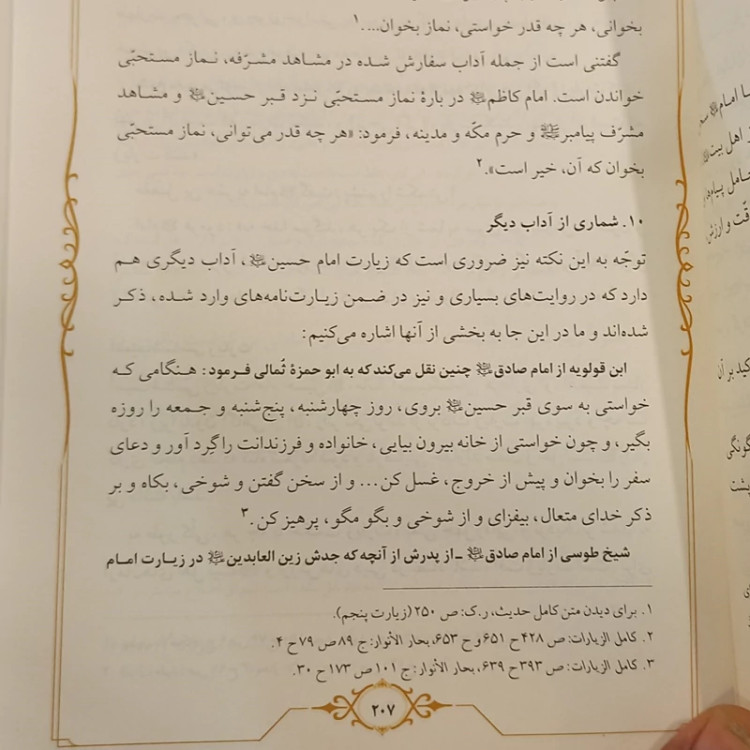 بخوانی، هر چه قدر خواستی، نماز بخوان...».۱
گفتنی است از جمله آداب سفارش شده در مشاهد مشرّفه، نماز مستحبّی
خواندن است. امام کاظم﷣ در بارهٔ نماز مستحبّی نزد قبر حسین﷣ و مشاهد
مشرّف پیامبرﷺ و حرم مکّه و مدینه، فرمود: «هر چه قدر می‌توانی، نماز مستحبّی
بخوان که آن، خیر است».۲
۱۰. شماری از آداب دیگر
توجّه به این نکته نیز ضروری است که زیارت امام حسین﷣، آداب دیگری هم
دارد که در روایت‌های بسیاری و نیز در ضمن زیارت‌نامه‌های وارد شده، ذکر
شده‌اند و ما در این جا به بخشی از آنها اشاره می‌کنیم:
ابن قولویه از امام صادق﷣ چنین نقل می‌کند که به ابو حمزهٔ ثُمالی فرمود: هنگامی که
خواستی به سوی قبر حسین﷣ بروی، روز چهارشنبه، پنج‌شنبه و جمعه را روزه
بگیر، و چون خواستی از خانه بیرون بیایی، خانواده و فرزندانت را گِرد آور و دعای
سفر را بخوان و پیش از خروج، غسل کن... و از سخن گفتن و شوخی، بکاه و بر
ذکر خدای متعال، بیفزای و از شوخی و بگو مگو، پرهیز کن.۳
شیخ طوسی از امام صادق﷣ ـ از پدرش از آنچه که جدش زین العابدین﷣ در زیارت امام
۱. برای دیدن متن کامل حدیث، ر.ک: ص ۲۵۰ (زیارت پنجم).
۲. کامل الزیارات: ص ۴۲۸ ح ۶۵۱ و ح ۶۵۳، بحار الأنوار: ج ۸۹ ص ۷۹ ح ۴.
۳. کامل الزیارات: ص ۳۹۳ ح ۶۳۹، بحار الأنوار: ج ۱۰۱ ص ۱۷۳ ح ۳۰.
۲۰۷